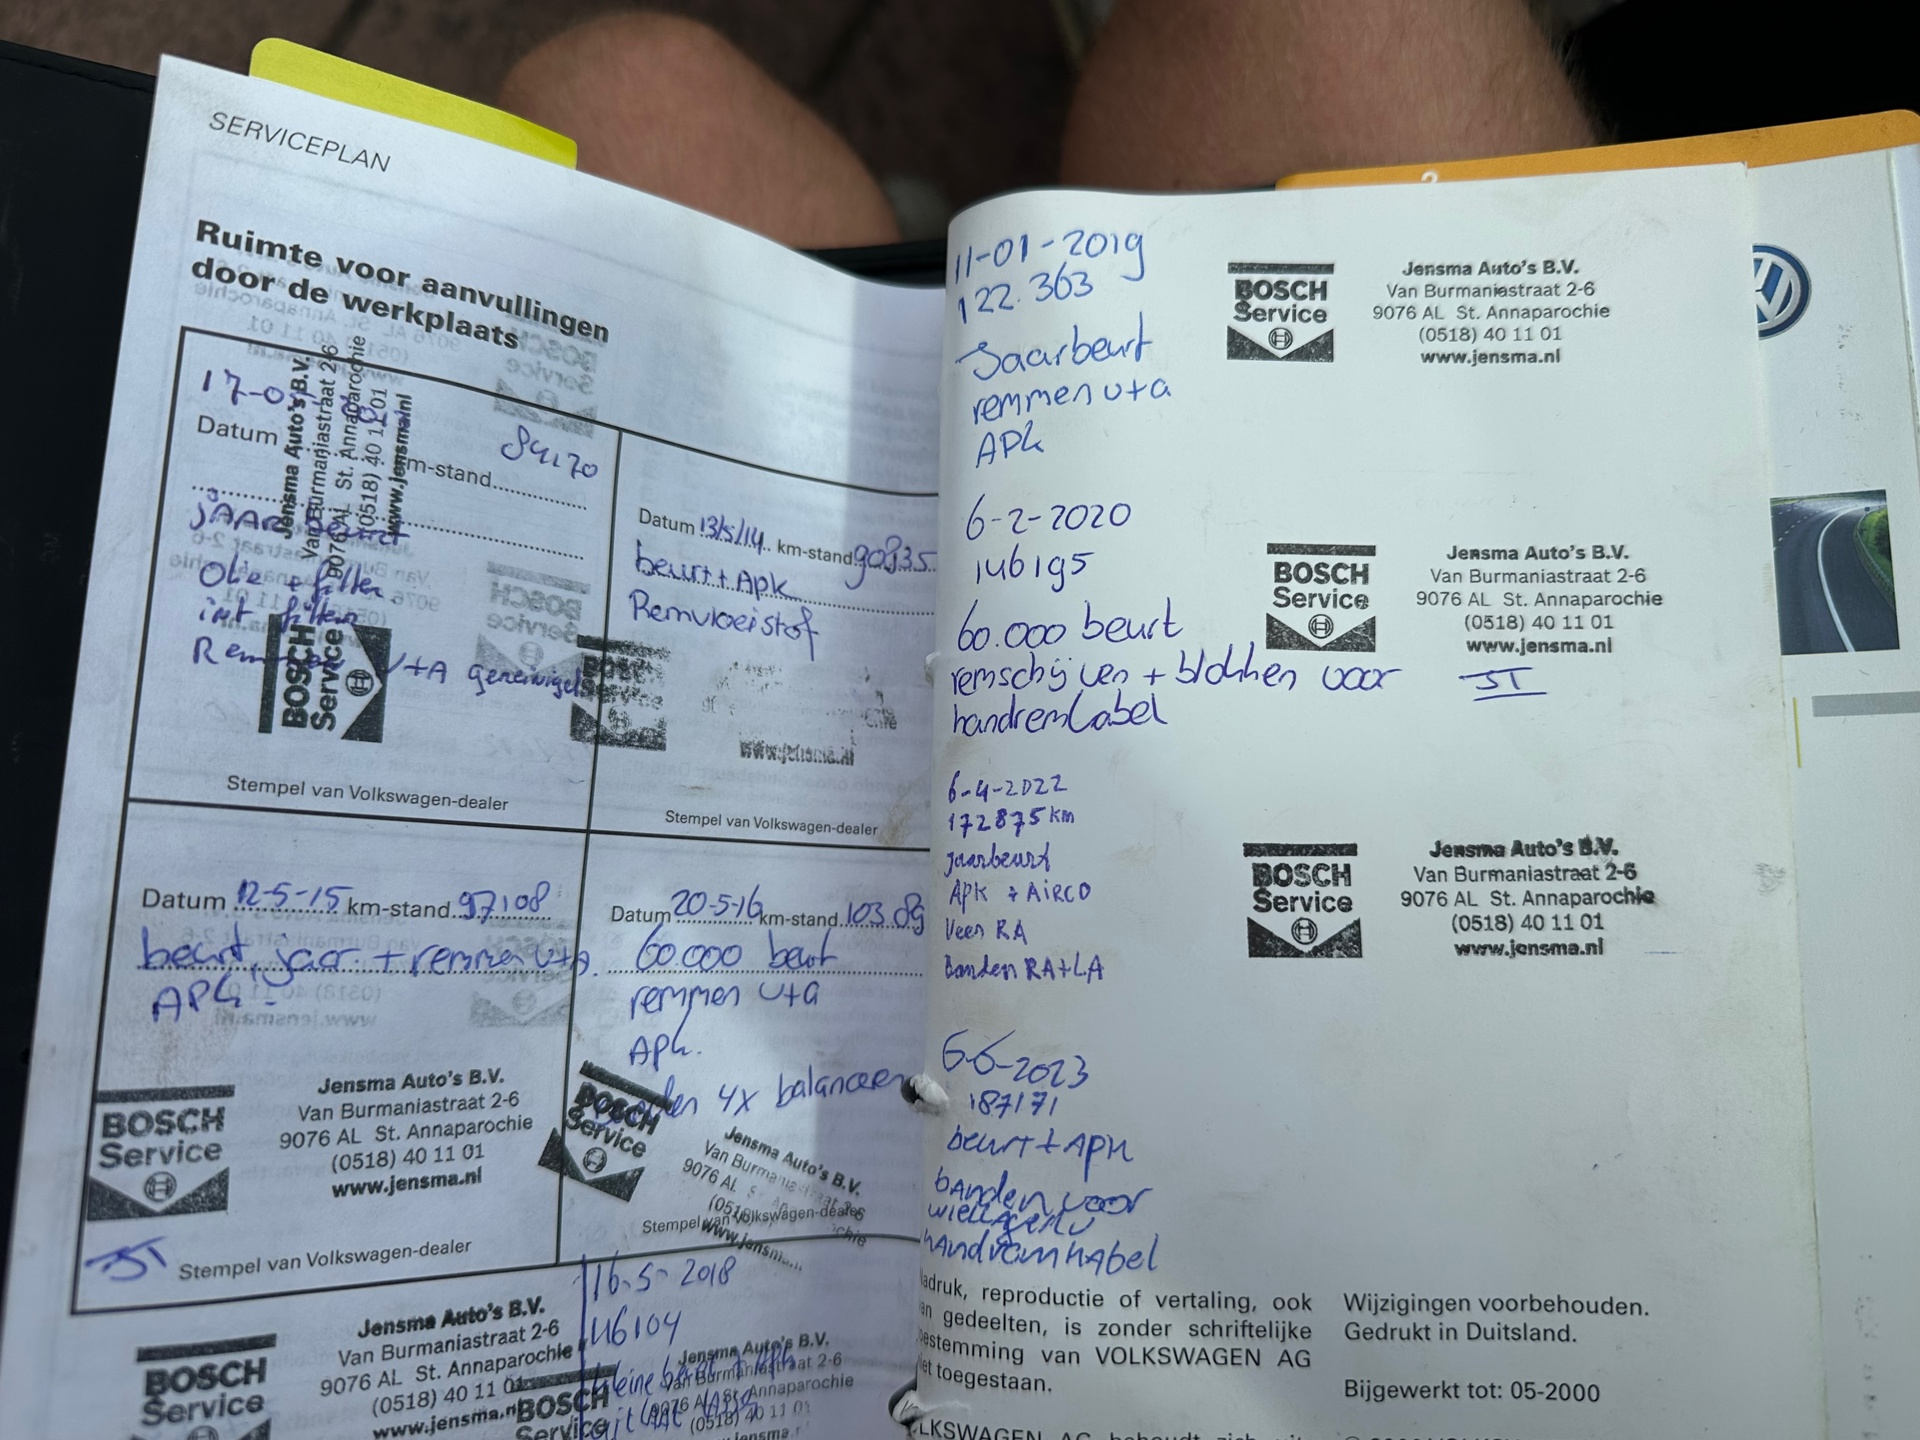 SERVICEPLAN
Ruimte voor aanvullingen
door de werkplaats
Datum
km-stand
84170
jaar beurt
Olie + filter
int filter
V+A gereinigd
Jensma Auto's B.V.
Van Burmaniastraat 2-6
9076 AL St. Annaparochie
(0518) 40 11 01
www.jensma.nl
BOSCH
Service
Stempel van Volkswagen-dealer
Datum 13/5/14 km-stand 90835
beurt + Apk
Remvloeistof
www.jensma.nl
Stempel van Volkswagen-dealer
Datum 12-5-15 km-stand 97108
beurt, jaar. + remmen v+A.
APK.
BOSCH
Service
Jensma Auto's B.V.
Van Burmaniastraat 2-6
9076 AL St. Annaparochie
(0518) 40 11 01
www.jensma.nl
JT
Stempel van Volkswagen-dealer
Datum 20-5-16 km-stand 103.89
60.000 beurt
remmen v+a
APK.
4x balanceren
BOSCH
Service
Jensma Auto's B.V.
Van Burmaniastraat 2-6
9076 AL
Stempel van Volkswagen-dealer
www.jensma
BOSCH
Service
Jensma Auto's B.V.
Van Burmaniastraat 2-6
9076 AL St. Annaparochie
(0518) 40 11 01
www.jensma.nl
16-5-2018
116104
kleine beurt + Apk
BOSCH
Service
Jensma Auto's B.V.
Van Burmaniastraat 2-6
9076 AL St. Annaparochie
(0518) 40 11 01
11-01-2019
122.363
Jaarbeurt
remmen v+a
APK
BOSCH
Service
Jensma Auto's B.V.
Van Burmaniastraat 2-6
9076 AL St. Annaparochie
(0518) 40 11 01
www.jensma.nl
6-2-2020
146195
60.000 beurt
remschijven + blokken voor
handremkabel
BOSCH
Service
Jensma Auto's B.V.
Van Burmaniastraat 2-6
9076 AL St. Annaparochie
(0518) 40 11 01
www.jensma.nl
JT
6-4-2022
172875 km
jaarbeurt
APK + AIRCO
Veer RA
Banden RA+LA
BOSCH
Service
Jensma Auto's B.V.
Van Burmaniastraat 2-6
9076 AL St. Annaparochie
(0518) 40 11 01
www.jensma.nl
6-6-2023
187171
beurt + APK
banden voor
wiellager
handremkabel
adruk, reproductie of vertaling, ook
an gedeelten, is zonder schriftelijke
oestemming van VOLKSWAGEN AG
iet toegestaan.
Wijzigingen voorbehouden.
Gedrukt in Duitsland.
Bijgewerkt tot: 05-2000